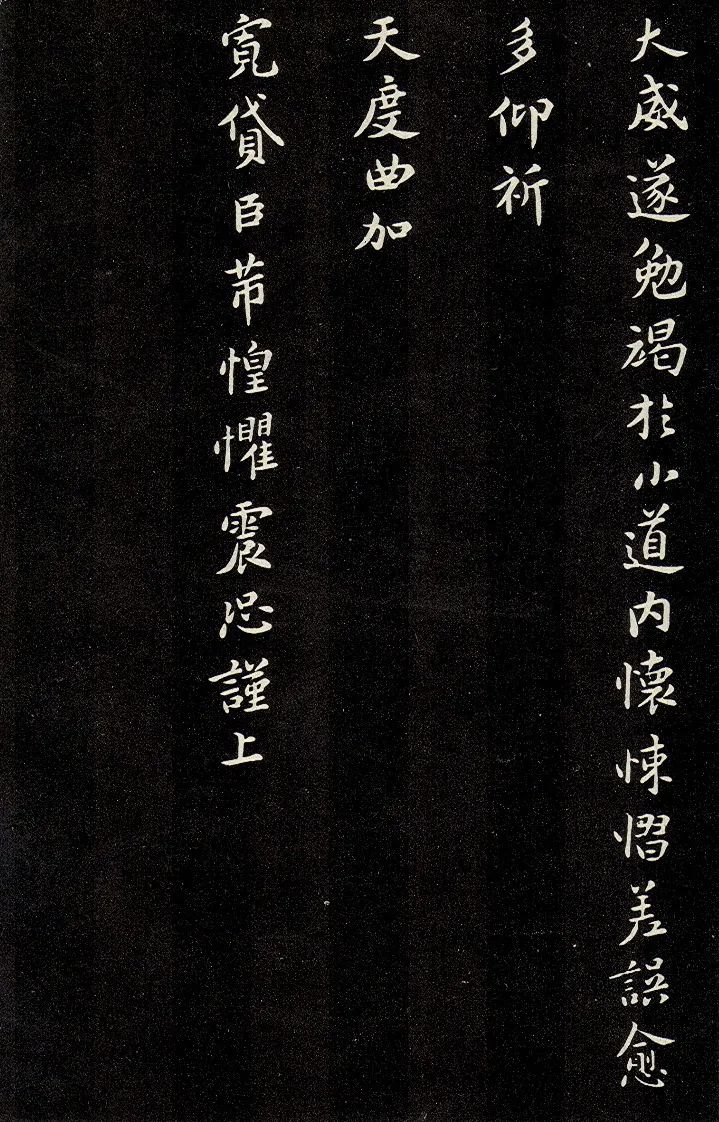 大威遂勉竭於小道内懷悚慴差誤愈
多仰祈
天度曲加
寛貸臣芾惶懼震恐謹上